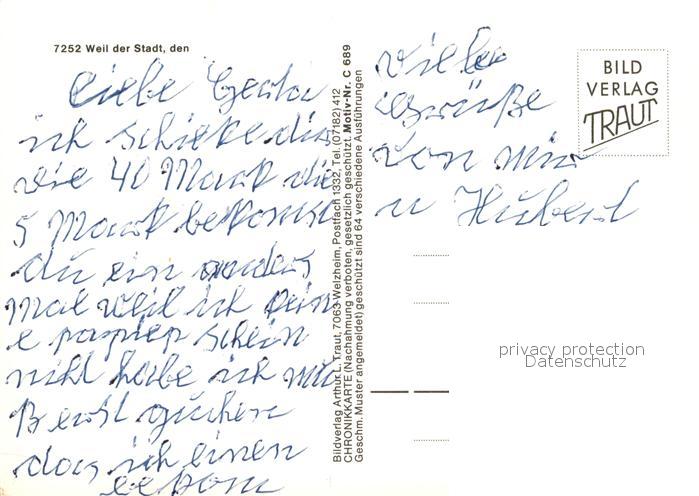 7252 Weil der Stadt, den
Liebe Gerda
ich schicke dir
die 40 Mark die
5 Mark bekomst
du ein anders
Mal weil ich kein
e papier schein
nicht habe ich mus
erst guchen
das ich einen
bekom
Bildverlag Arthur L. Traut, 7063 Welzheim, Postfach 1332, Tel. (07182) 412
CHRONIKKARTE (Nachahmung verboten, gesetzlich geschützt. Motiv-Nr. C 689
Geschm. Muster angemeldet) geschützt sind 64 verschiedene Ausführungen
viele
grüße
von mir
u Hubert
BILD
VERLAG
TRAUT
privacy protection
Datenschutz